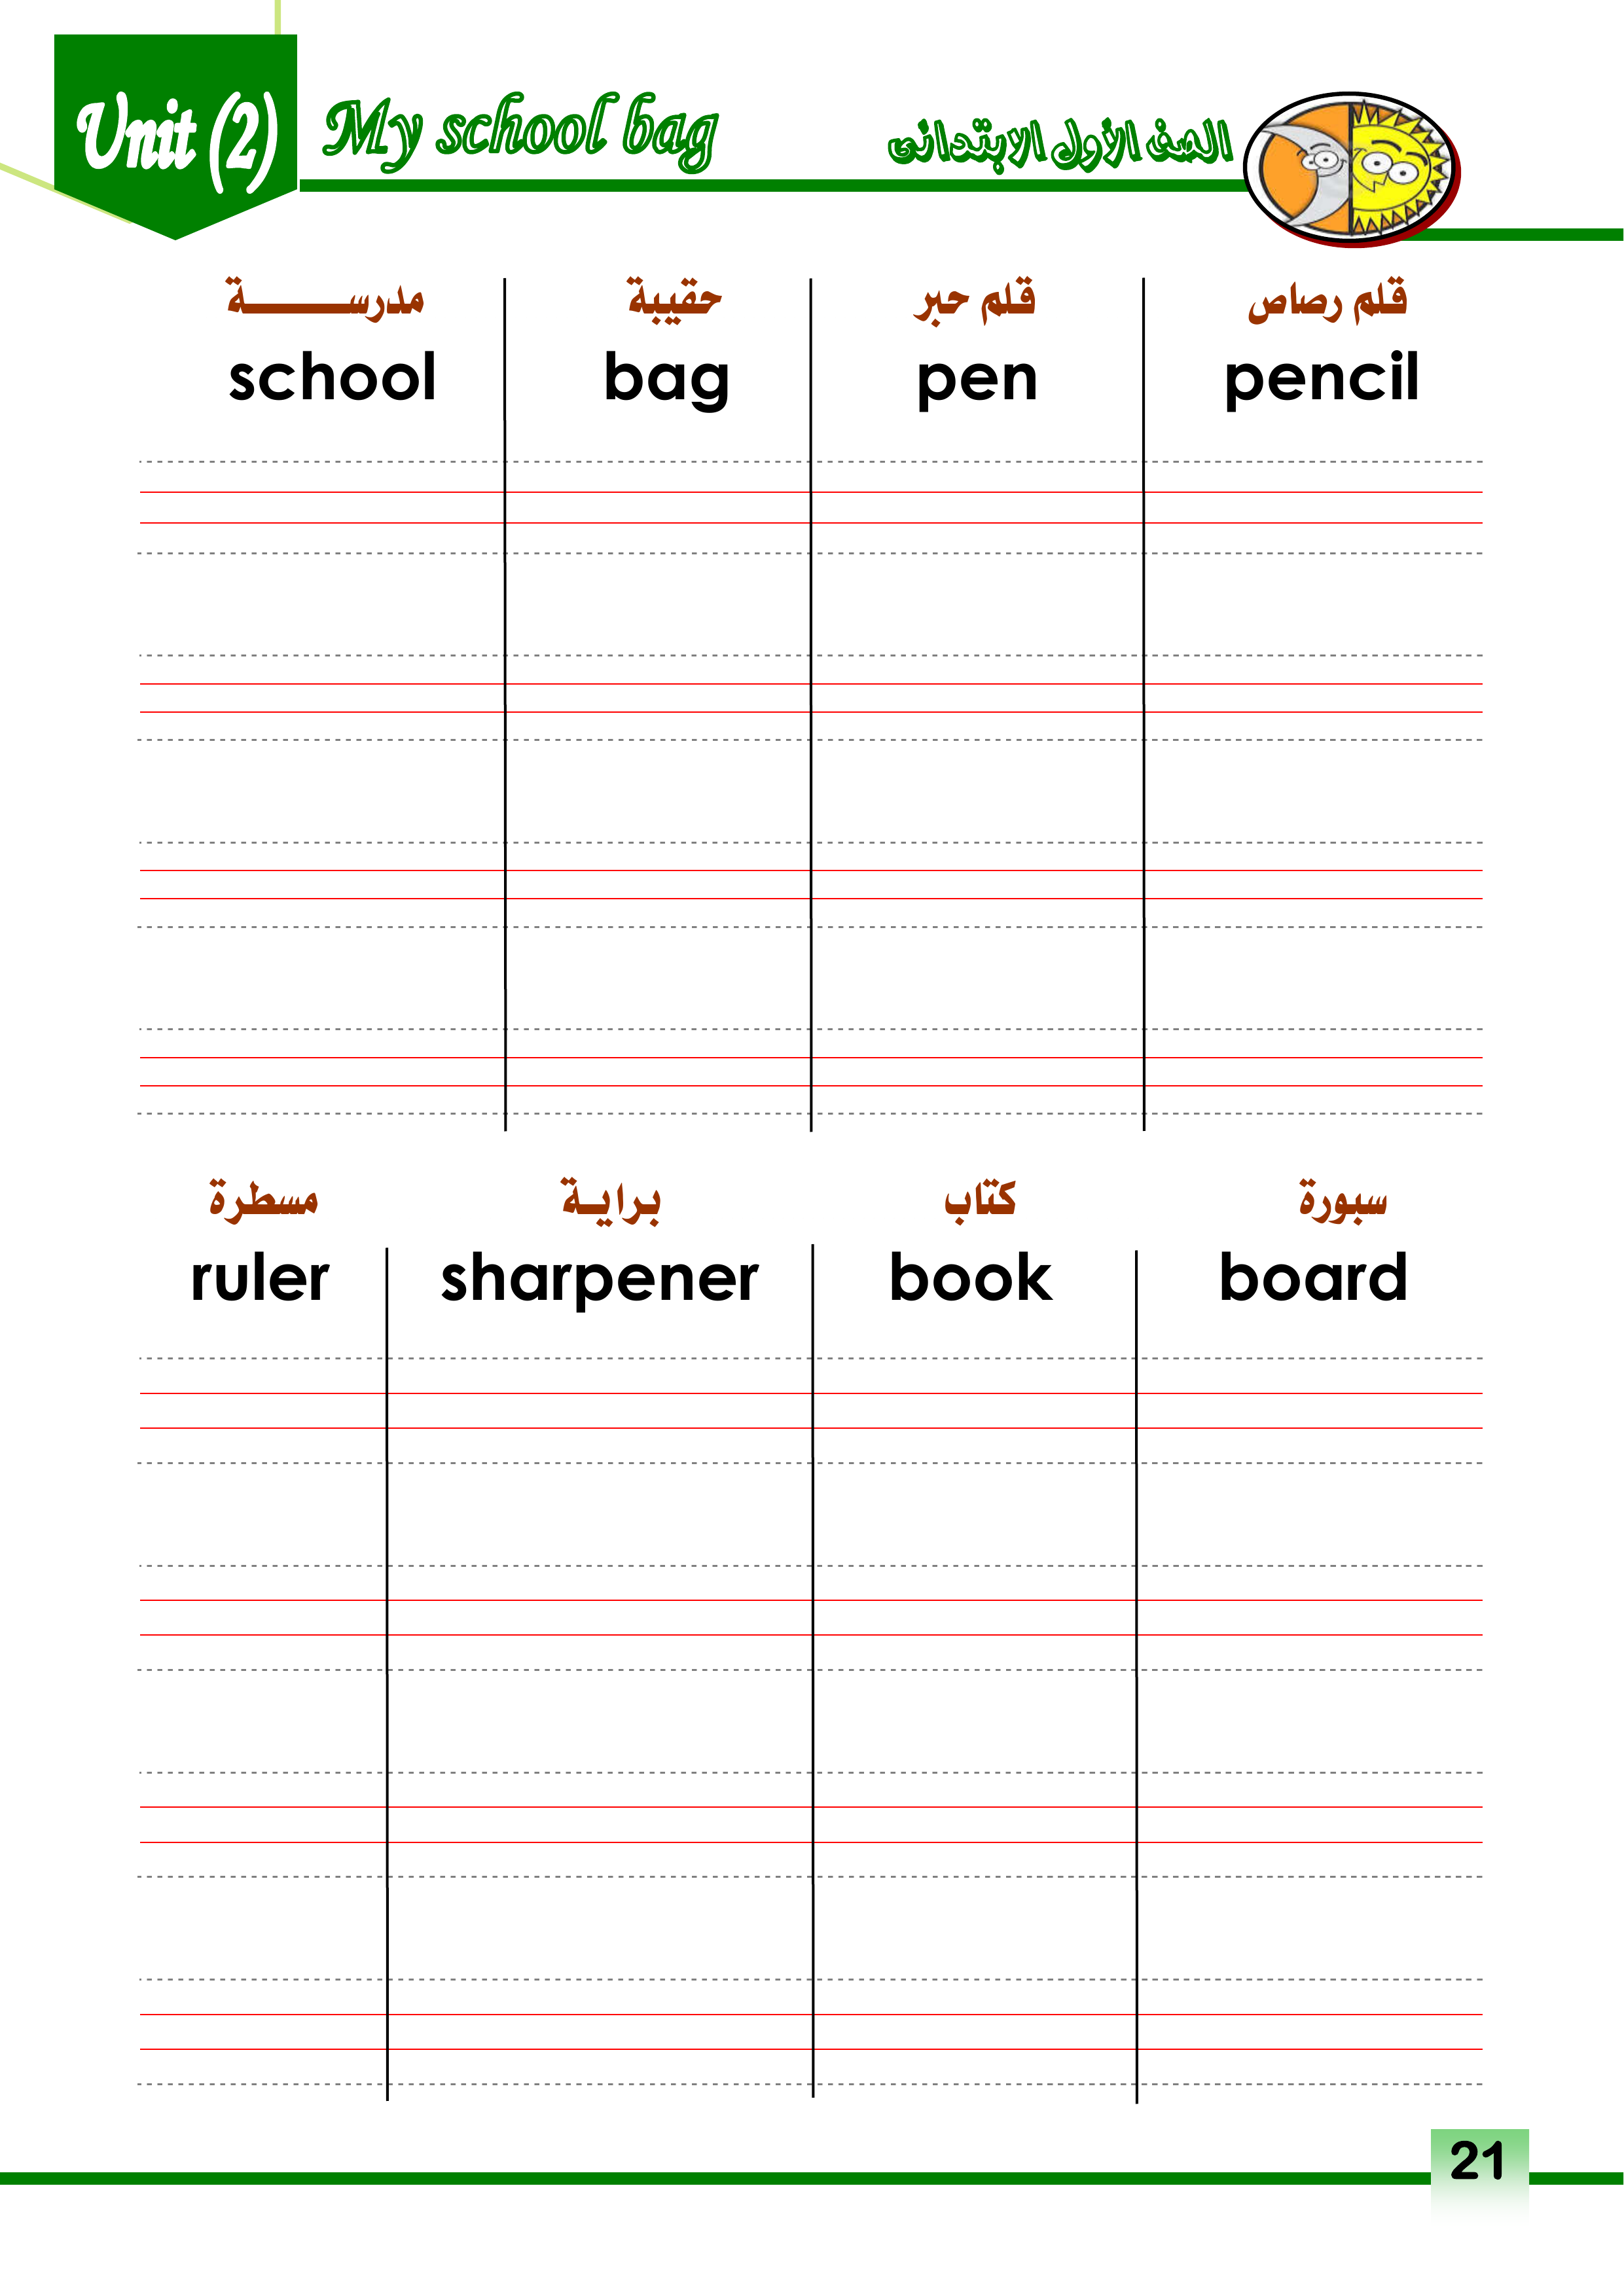 Unit (2) My school bag الصف الأول الابتدائى
مدرســـــــــة حقيبة قلم حبر قلم رصاص
school bag pen pencil
مسطرة برايـة كتاب سبورة
ruler sharpener book board
21